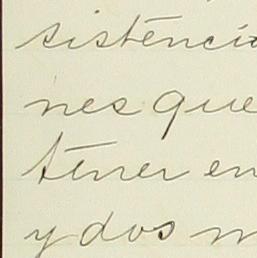 sistenci
nes que
tener en
y dos m